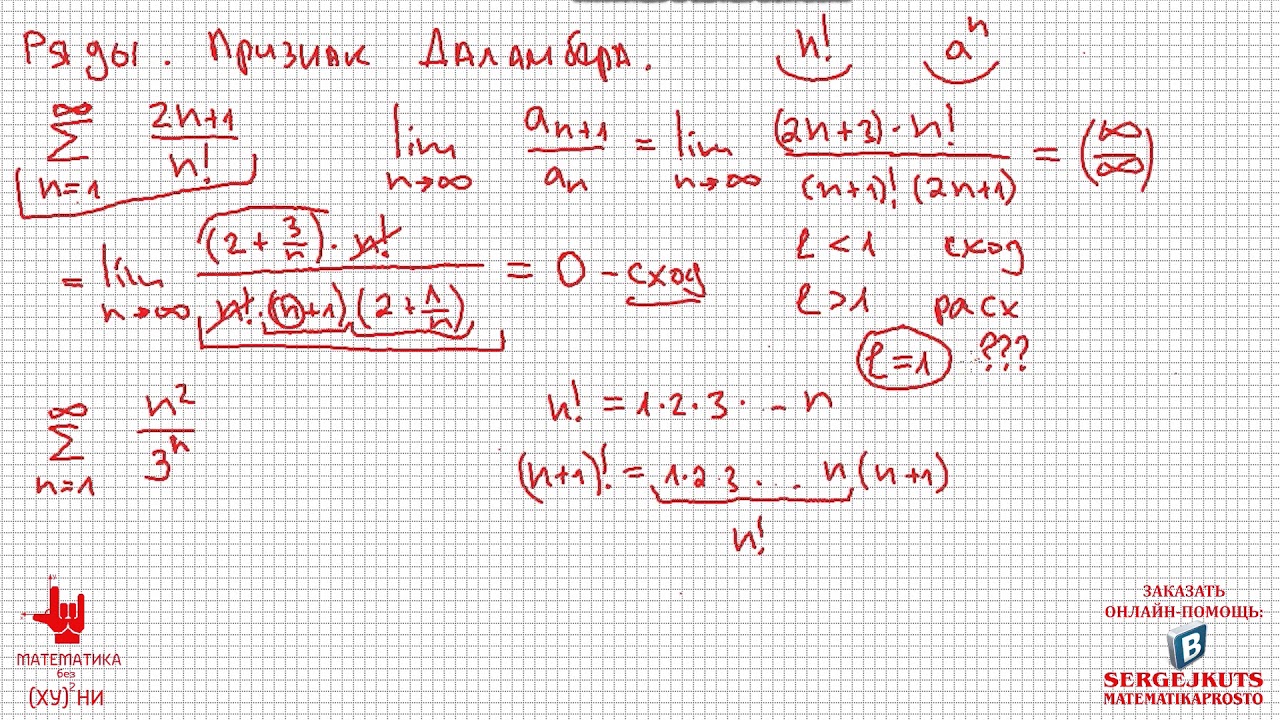 Ряды. Признак Даламбера. n! aⁿ
∞ ∑ n=1 (2n+1)/n! lim n→∞ aₙ₊₁/aₙ = lim n→∞ ((2n+3)·n!)/((n+1)!(2n+1)) = (∞/∞)
= lim n→∞ ((2+3/n)·n!)/(n!·(n+1)(2+1/n)) = 0 – сход
ℓ < 1 сход
ℓ > 1 расх
ℓ = 1 ???
∞ ∑ n=1 n²/3ⁿ
n! = 1·2·3·... n
(n+1)! = 1·2·3 ... n(n+1)
n!
y
x
МАТЕМАТИКА
без
(ХУ)²НИ
ЗАКАЗАТЬ
ОНЛАЙН-ПОМОЩЬ:
B
SERGEJKUTS
MATEMATIKAPROSTO